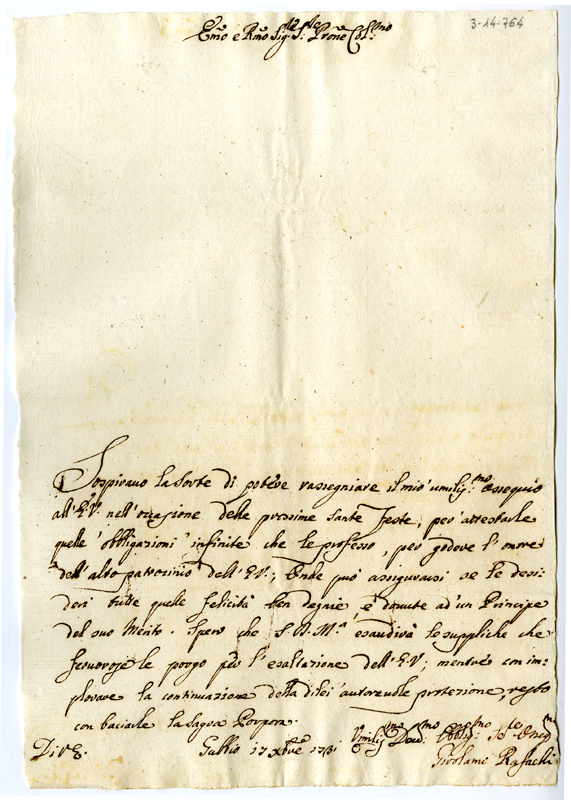 3-14-764
Emo e Rmo Sig.r Prone Col.mo
Sospiravo la sorte di potere rassegniare il mio umiliss.mo ossequio
all'E.V. nell'occasione delle prossime Sante Feste, per attestarle
quelle obbligazioni infinite che le professo, per godere l'onore
dell'alto patrocinio dell'E.V.; Onde può assigurarsi se le desi:
deri tutte quelle felicità ben degnie, e dovute ad un Principe
del suo Merito. Spero che S.D.M.a esaudirà le suppliche che
fervorose le porgo per l'esaltazione dell'E.V.; mentre con im:
plorare la continuazione della di lei autorevole protezione, resto
con baciarle la Sagra Porpora.
Di V.E.
Gubbio 17 Xbre 1731
Umiliss.mo Dev.mo Obblig.mo Se.re Osseq.mo
Girolamo Rafaelli